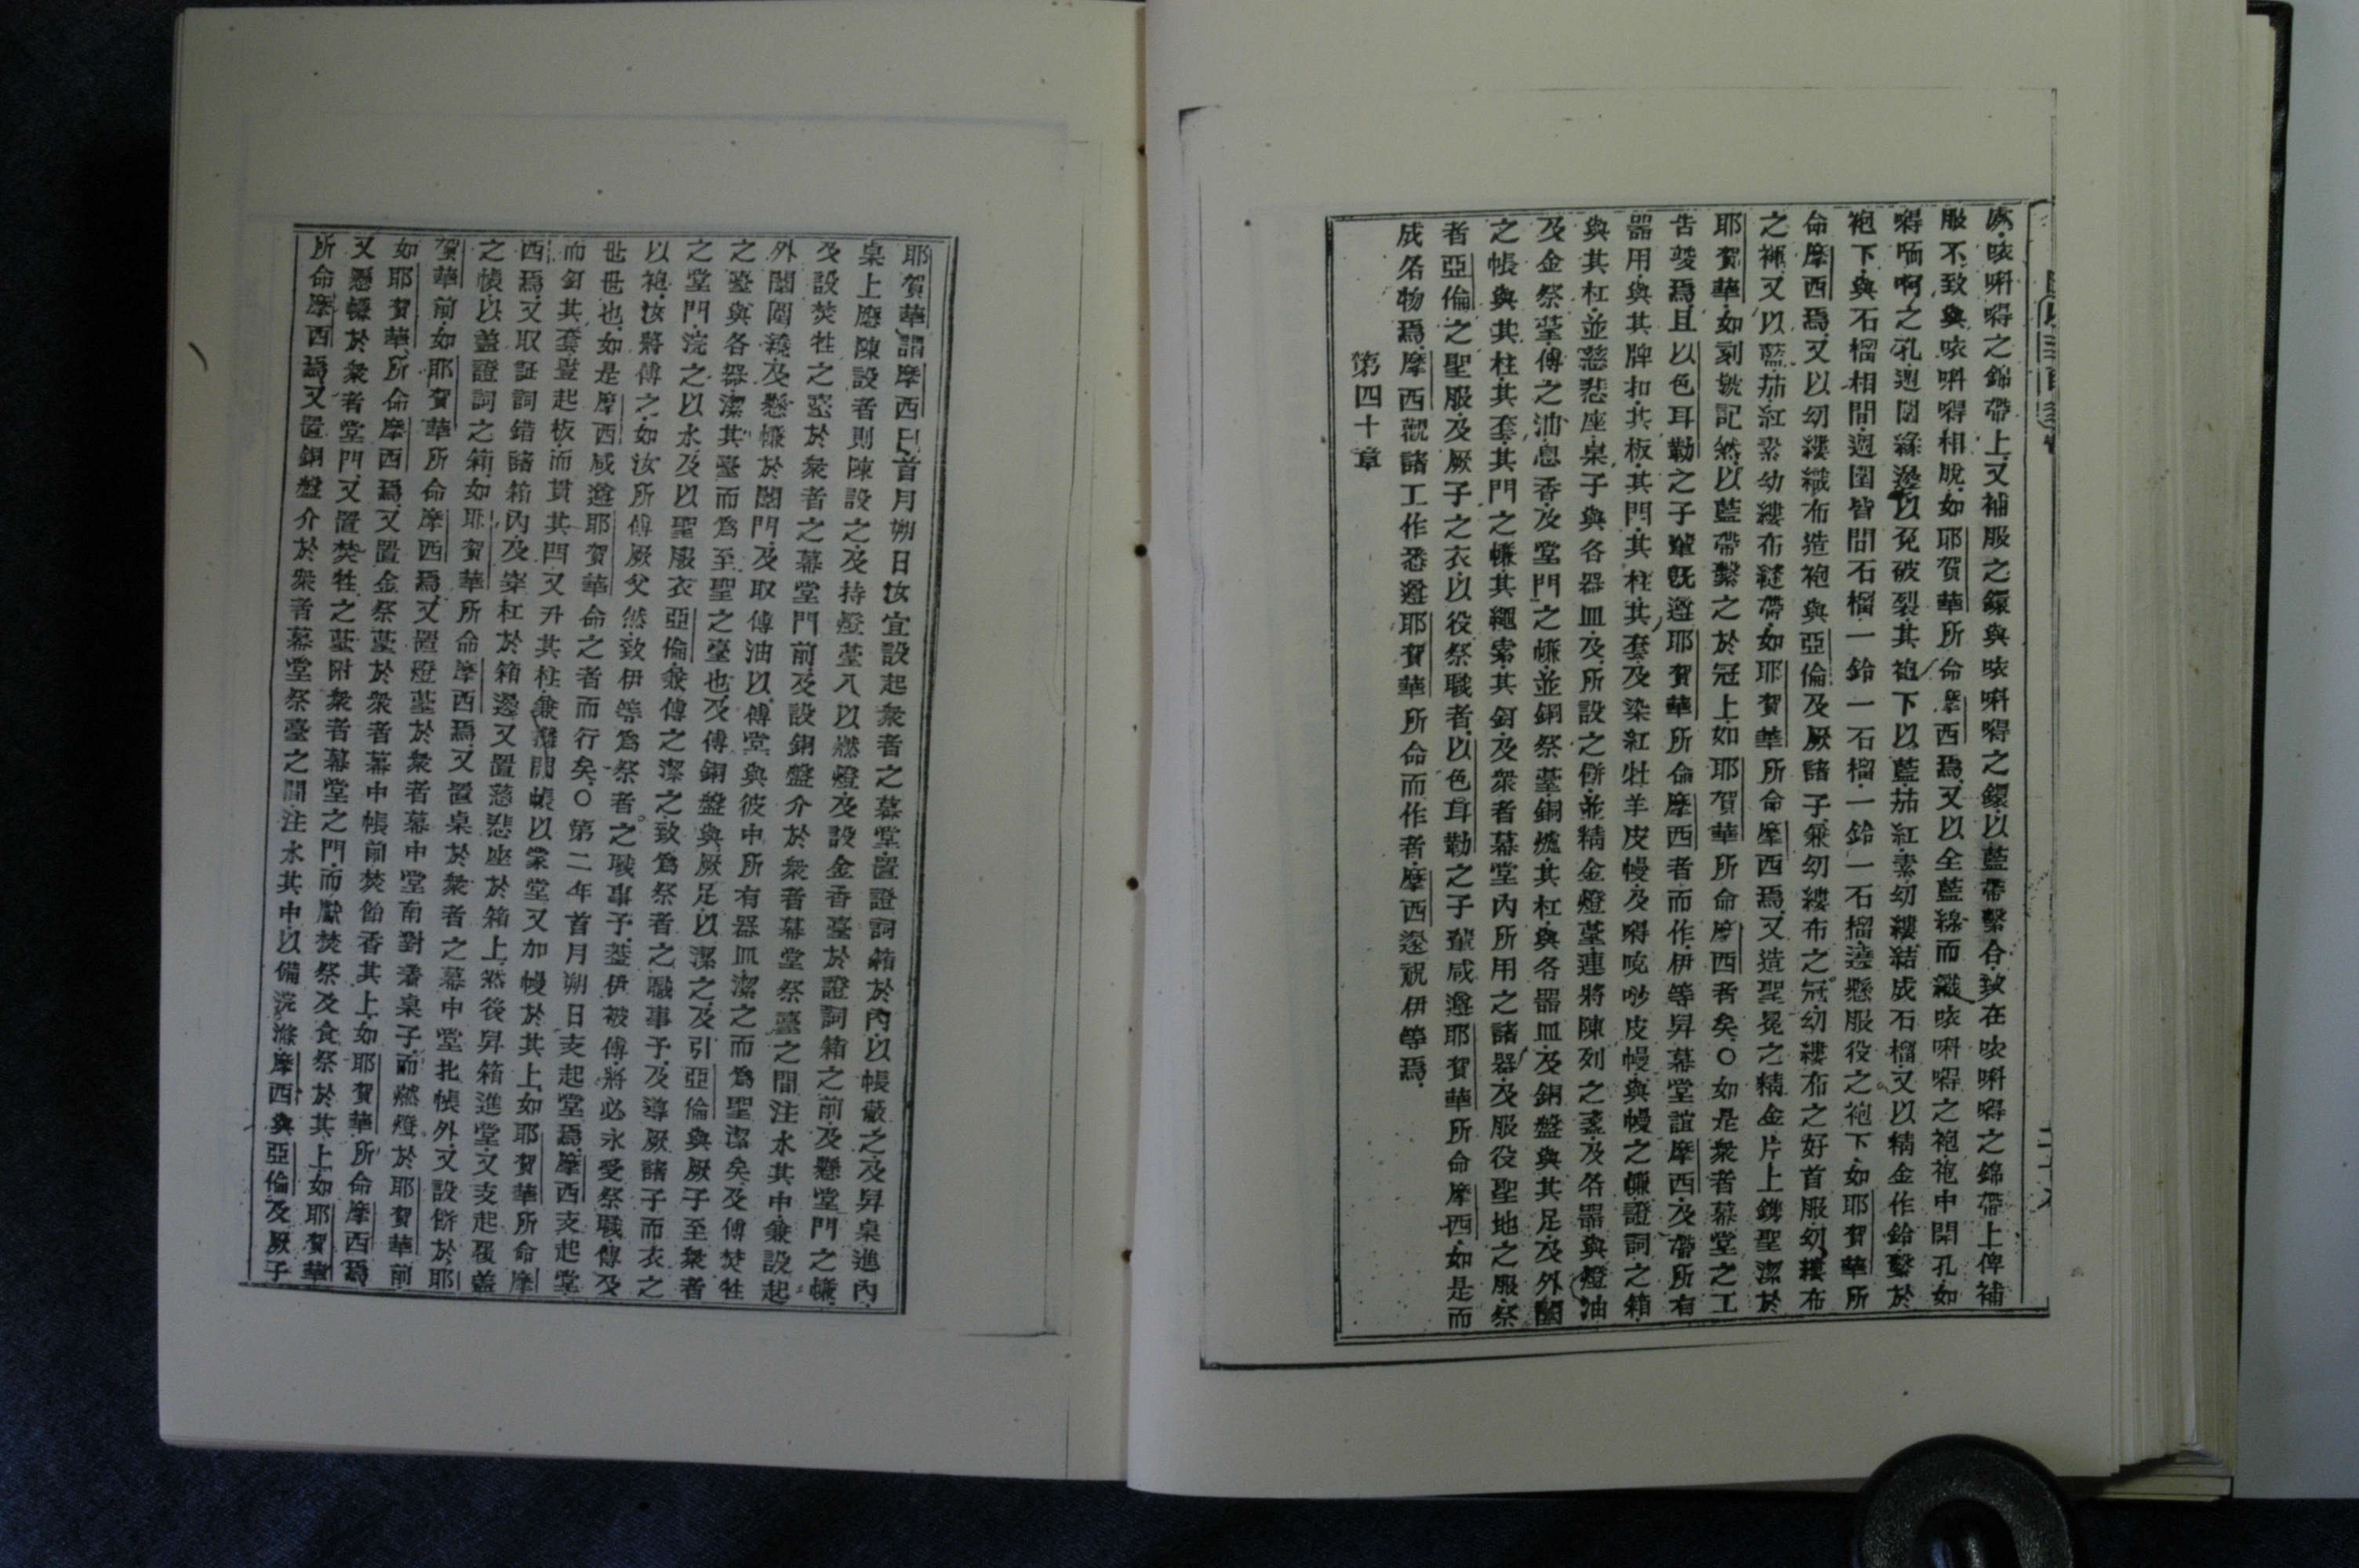 處.咳唎嘚之錦帶上.又補服之鐶與咳唎嘚之鐶.以藍帶繫合.致在咳唎嘚之錦帶上俾補
服不致與咳唎嘚相脫.如耶賀華所命摩西焉.又以全藍綠而織咳唎嘚之袍.袍中開孔如
嘚啞啊之孔.週圍緣邊以免破裂.其袍下以藍茄紅素幼縷結成石榴.又以精金作鈴.繫於
袍下.與石榴相間.週圍皆間石榴.一鈴一石榴.一鈴一石榴.遶懸服役之袍下.如耶賀華所
命摩西焉.又以幼縷織布造袍.與亞倫及厥諸子.兼幼縷布之冠.幼縷布之好首服.幼縷布
之褲.又以藍茄紅素幼縷布縫帶.如耶賀華所命摩西焉.又造聖冕之精金片.上鐫聖潔於
耶賀華.如刻號記然.以藍帶繫之於冠上.如耶賀華所命摩西者矣.○如是衆者幕堂之工
告竣焉.且以色耳勒之子輩旣遵耶賀華所命摩西者而作.伊等舁幕堂詣摩西.及帶所有
器用.與其牌扣.其板.其門.其柱.其套.及染紅牡羊皮幔.及嘚吮唦皮幔.與幔之㡘.證詞之箱
與其杠.並慈悲座.桌子與各器皿.及所設之餅.並精金燈臺.連將陳列之盞.及各器與燈油
及金祭臺.傅之油.息香.及堂門之㡘.並銅祭臺.銅爐.其杠.與各器皿.及銅盤與其足.及外闈
之帳與其柱.其套.其門之㡘.其繩索.其釘.及衆者幕堂內所用之諸器.及服役聖地之服.祭
者亞倫之聖服.及厥子之衣.以役祭職者.以色耳勒之子輩咸遵耶賀華所命摩西.如是而
成各物焉.摩西觀諸工作悉遵耶賀華所命而作者.摩西遂祝伊等焉.
第四十章
耶賀華謂摩西曰.首月朔日汝宜設起衆者之幕堂.置證詞箱於內.以帳蔽之.及舁桌進內.
桌上應陳設者則陳設之.及持燈臺入以燃燈.及設金香臺於證詞箱之前.及懸堂門之㡘.
及設焚牲之臺於衆者之幕堂門前.及設銅盤介於衆者幕堂祭臺之間.注水其中.兼設起
外闈圍繞.及懸㡘於闈門.及取傅油以傅堂與彼中所有器皿.潔之而爲聖潔矣.及傅焚牲
之臺與各器.潔其臺而爲至聖之臺也.及傅銅盤與厥足.以潔之.及引亞倫與厥子至衆者
之堂門.浣之以水.及以聖服衣亞倫.兼傅之潔之.致爲祭者之職事予.及導厥諸子而衣之
以袍.汝將傅之.如汝所傅厥父然.致伊等爲祭者之職事予.蓋伊被傅.將必永受祭職.傅及
世世也.如是摩西咸遵耶賀華命之者而行矣.○第二年首月朔日支起堂焉.摩西支起堂
而釘其套.豎起板.而貫其閂.又升其柱.兼攤開帳以棠堂.又加幔於其上.如耶賀華所命摩
西焉.又取証詞錯諸箱內.及穿杠於箱邊.又置慈悲座於箱上.然後舁箱進堂.又支起覆蓋
之帳以蓋證詞之箱.如耶賀華所命摩西焉.又置桌於衆者之幕中.堂北帳外.又設餅於耶
賀華前.如耶賀華所命摩西焉.又置燈臺於衆者幕中堂南.對着桌子.而燃燈於耶賀華前
如耶賀華所命摩西焉.又置金祭臺於衆者幕中帳前.焚飴香其上.如耶賀華所命摩西焉
又懸㡘於衆者堂門.又置焚牲之臺附衆者幕堂之門.而獻焚祭及食祭於其上.如耶賀華
所命摩西焉.又置銅盤介於衆者幕堂祭臺之間.注水其中.以備浣滌.摩西與亞倫及厥子